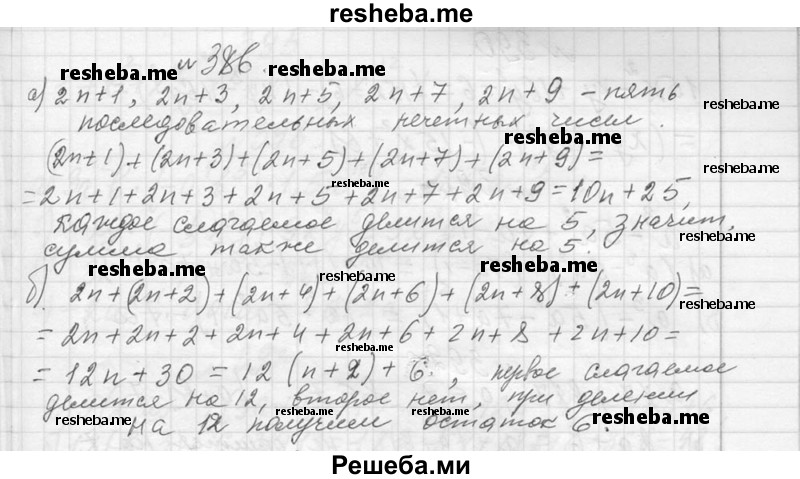 resheba.me
№ 386.
resheba.me resheba.me
а) 2n+1, 2n+3, 2n+5, 2n+7, 2n+9 – пять
resheba.me
последовательных нечетных чисел.
resheba.me
(2n+1)+(2n+3)+(2n+5)+(2n+7)+(2n+9)=
resheba.me
resheba.me
=2n+1+2n+3+2n+5+2n+7+2n+9=10n+25,
каждое слагаемое делится на 5, значит,
resheba.me
сумма также делится на 5.
resheba.me resheba.me
resheba.me
б) 2n+(2n+2)+(2n+4)+(2n+6)+(2n+8)+(2n+10)=
resheba.me
= 2n+2n+2+2n+4+2n+6+2n+8+2n+10=
resheba.me
= 12n+30 = 12(n+2)+6, первое слагаемое
делится на 12, второе нет, при делении
resheba.me resheba.me resheba.me
на 12 получим остаток 6.
Решеба.ми